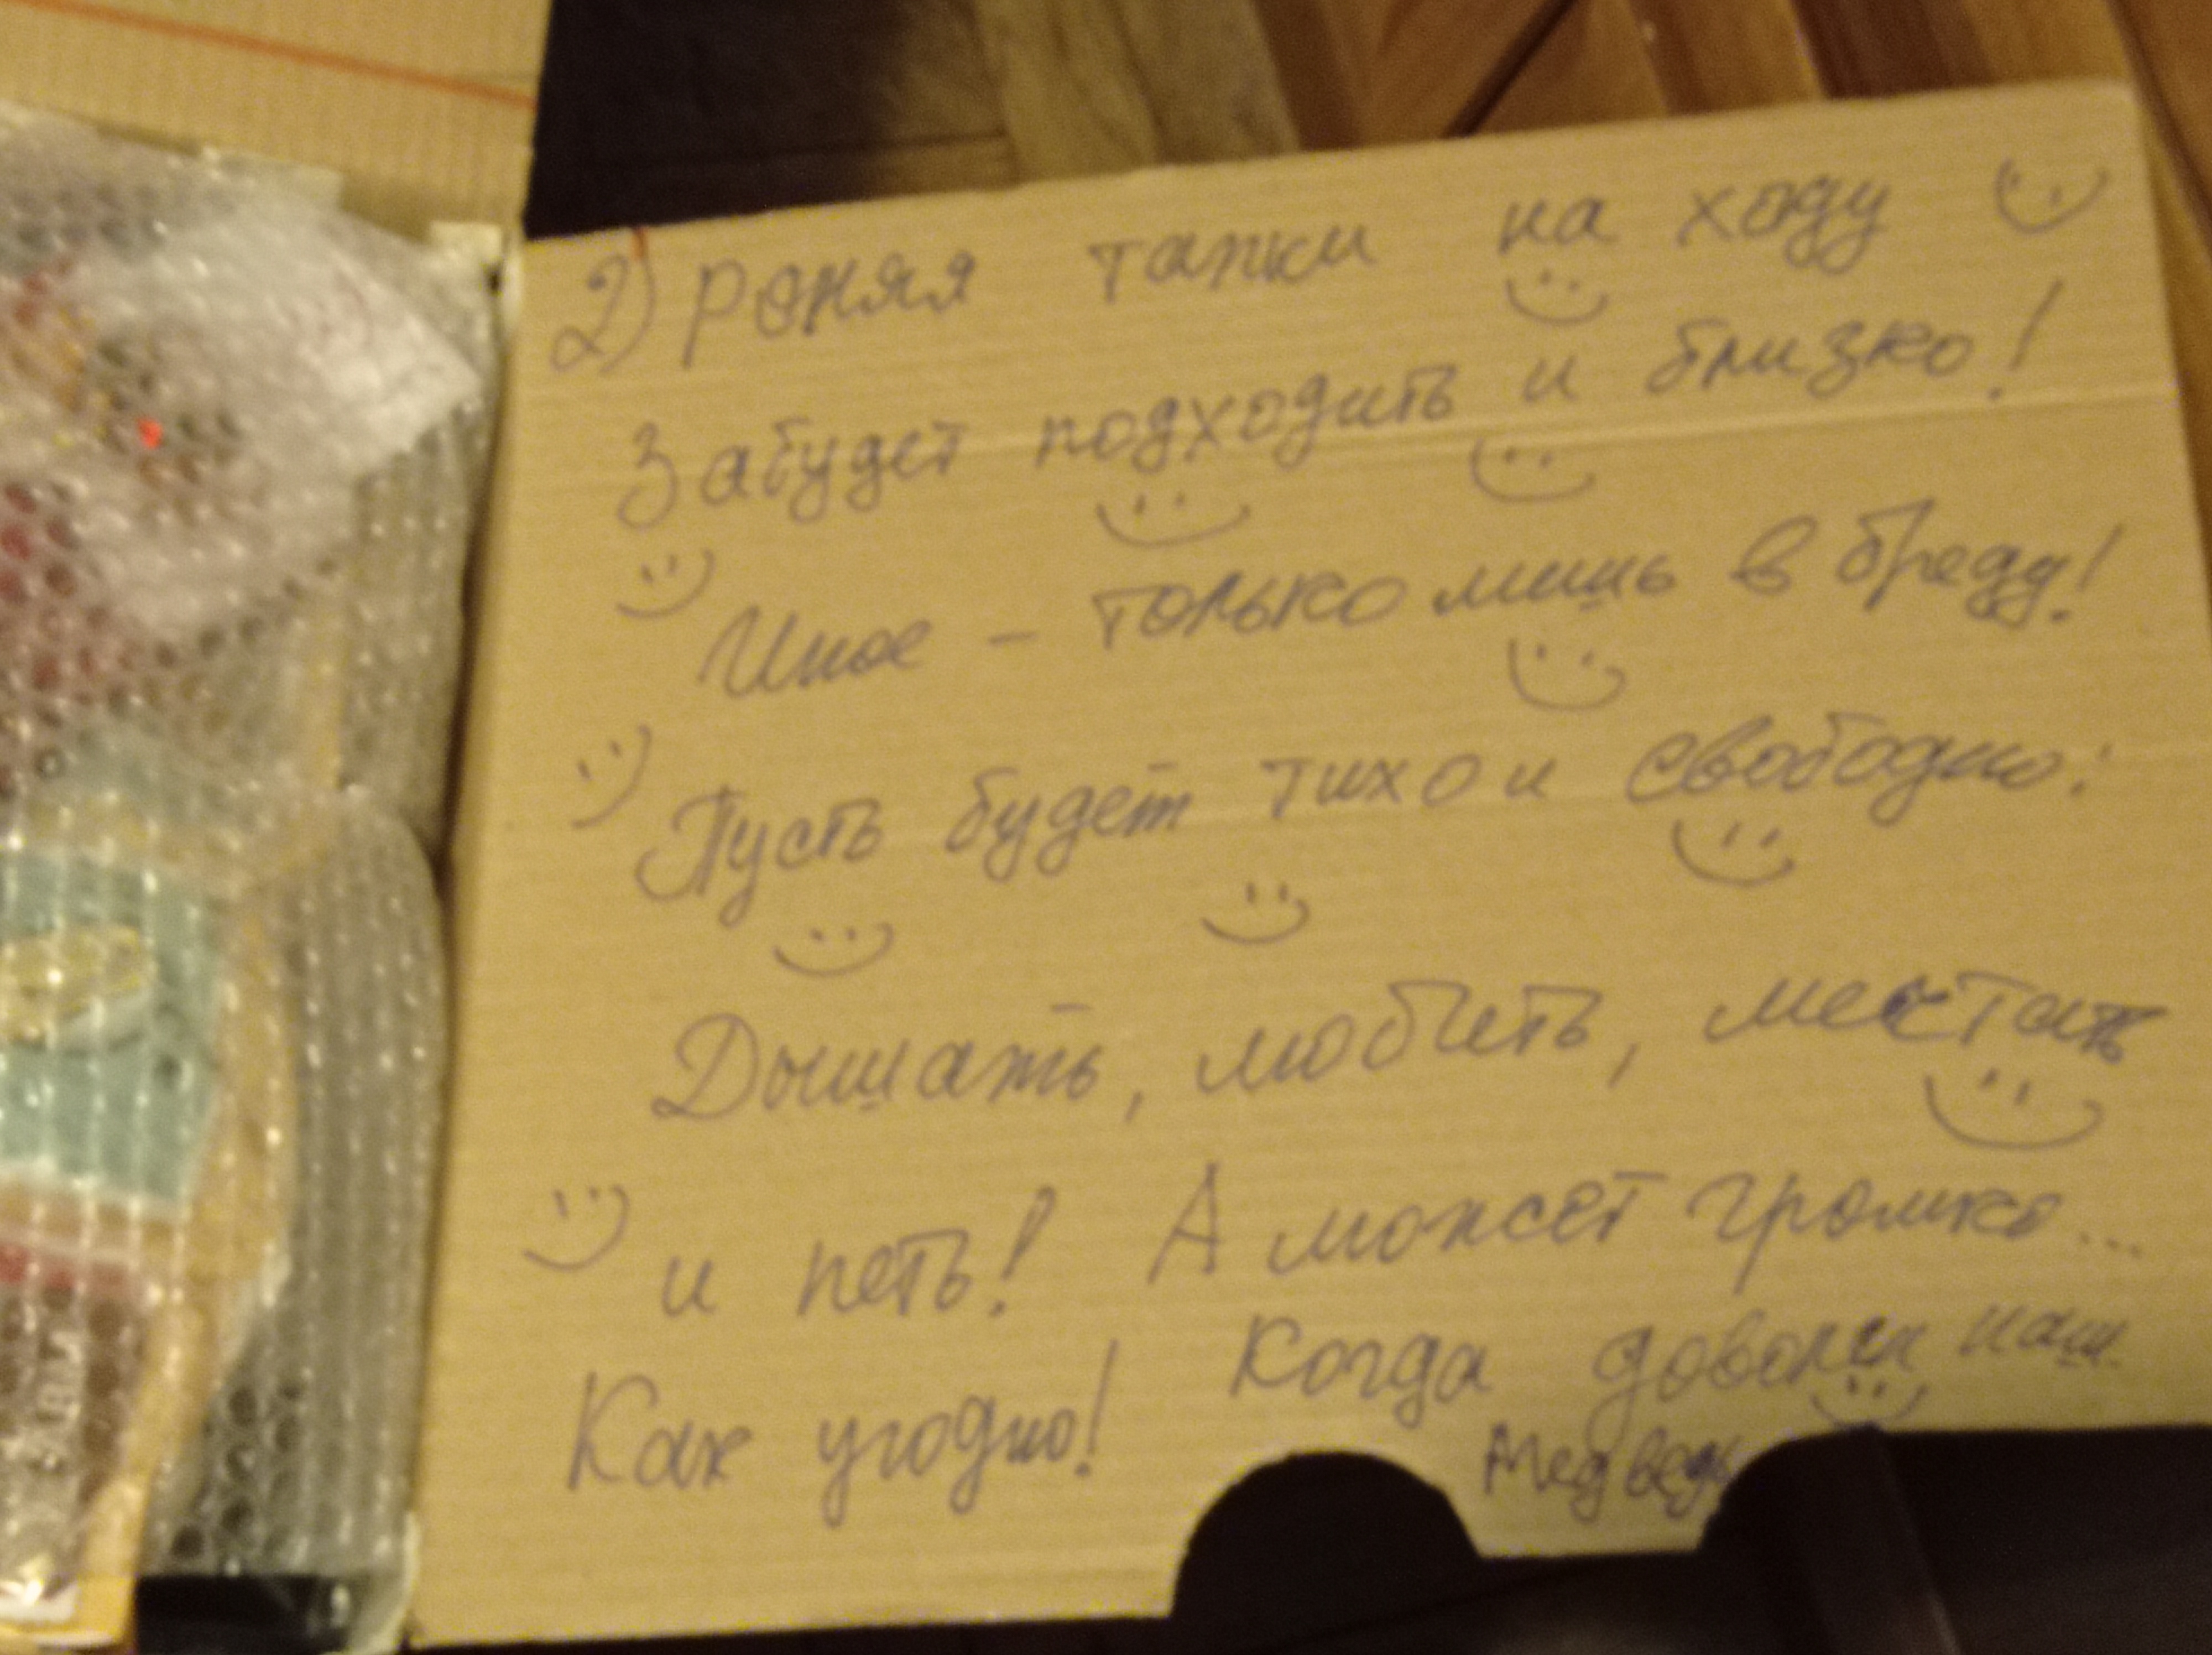 2) роняя тапки на ходу
Забудет подходить и близко!
Иное - только лишь в бреду!
Пусть будет тихо и свободно:
Дышать, любить, мечтать
и петь! А может громко...
Как угодно! Когда доволен наш
Медведь